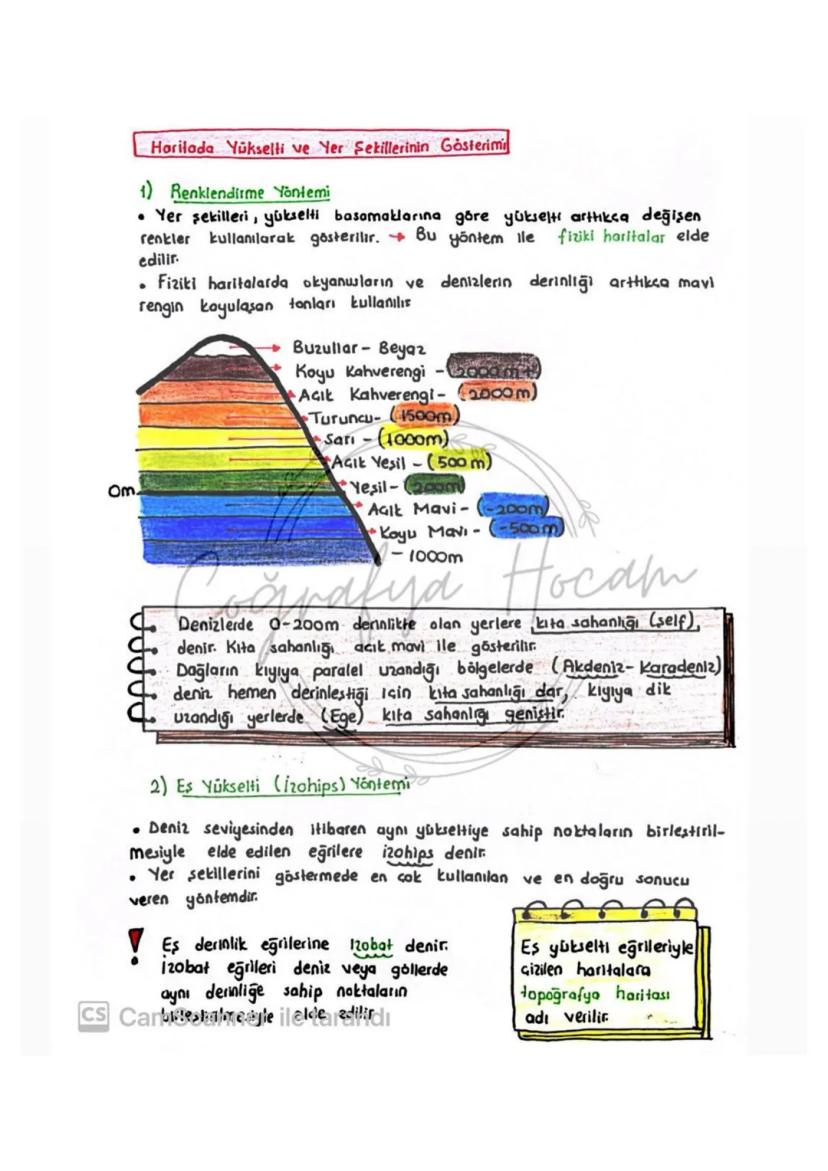 Haritada Yükselti ve Yer Şekillerinin Gösterimi
1) Renklendirme Yöntemi
• Yer şekilleri, yükselti basamaklarına göre yükselti arttıkca değişen
renkler kullanılarak gösterilir. → Bu yöntem ile fiziki haritalar elde
edilir.
• Fiziki haritalarda okyanusların ve denizlerin derinliği arttıkca mavi
rengin koyulaşan tonları kullanılır
Buzullar - Beyaz
Koyu Kahverengi - (2000 m+)
Acık Kahverengi - (2000m)
Turuncu - (1500m)
Sarı - (1000m)
Acık Yeşil - (500 m)
Yeşil - (200m)
0m
Acık Mavi - (-200m)
Koyu Mavi - (-500m)
- 1000m
Coğrafya Hocam
Denizlerde 0-200m derinlikte olan yerlere kıta sahanlığı (şelf)
denir. Kıta sahanlığı acık mavi ile gösterilir.
Dağların kıyıya paralel uzandığı bölgelerde (Akdeniz- Karadeniz)
deniz hemen derinleştiği icin kıta sahanlığı dar, kıyıya dik
uzandığı yerlerde (Ege) kıta sahanlığı geniştir.
2) Eş Yükselti (İzohips) Yöntemi
• Deniz seviyesinden itibaren aynı yükseltiye sahip noktaların birleştiril-
mesiyle elde edilen eğrilere izohips denir.
• Yer şekillerini göstermede en cok kullanılan ve en doğru sonucu
veren yöntemdir.
! Eş derinlik eğrilerine izobat denir.
İzobat eğrileri deniz veya göllerde
aynı derinliğe sahip noktaların
birleştirilmesiyle elde edilir
Eş yükselti eğrileriyle
cizilen haritalara
topoğrafya haritası
adı verilir.
CS CamScanner ile tarandı